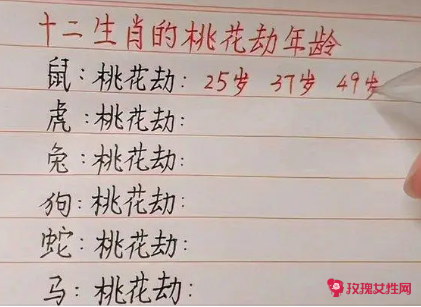 十二生肖的桃花劫年龄
鼠:桃花劫: 25岁 37岁 49岁
虎:桃花劫:
兔:桃花劫:
狗:桃花劫:
蛇:桃花劫:
马:桃花劫:
玫瑰女性网